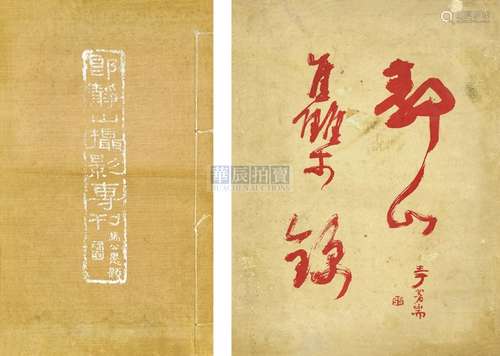 郎靜山攝影專刊
馬公愚題
靜山
集錦
華辰拍賣
HUACHEN AUCTIONS